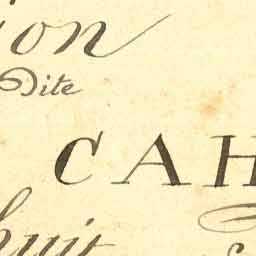 ion
Dite
CAH
huit